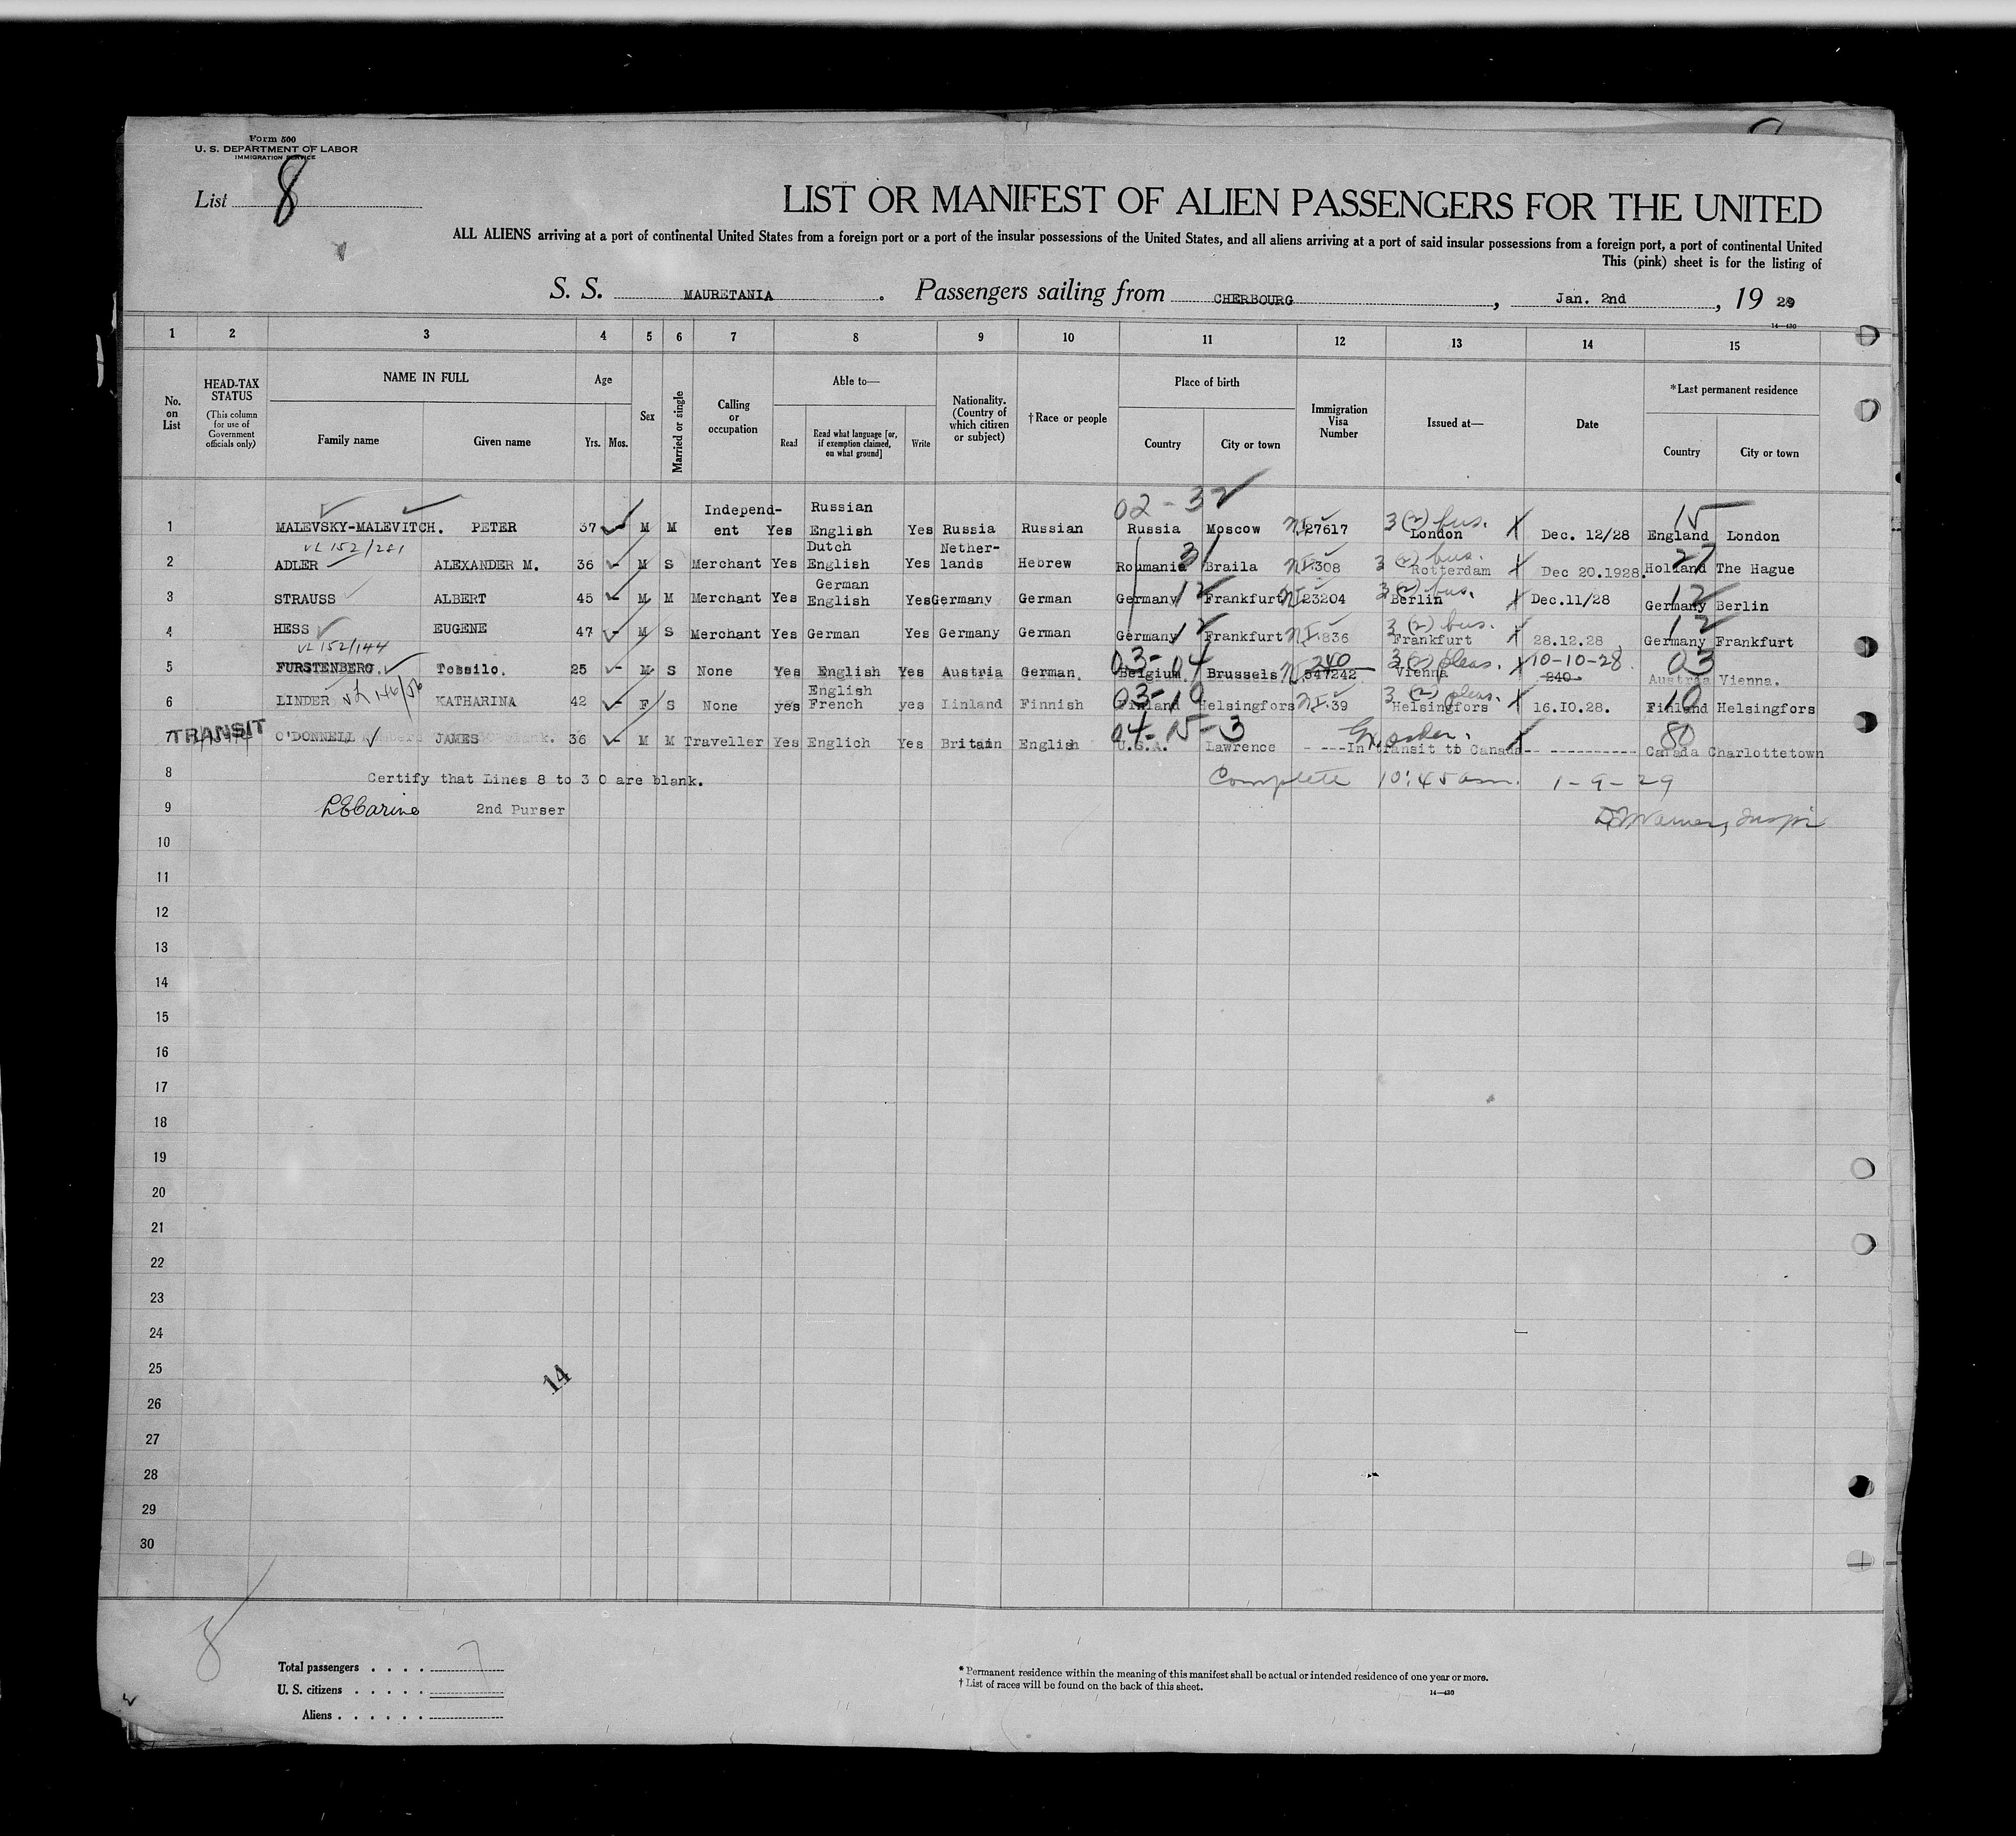 Form 500
U. S. DEPARTMENT OF LABOR
IMMIGRATION SERVICE
List 8
LIST OR MANIFEST OF ALIEN PASSENGERS FOR THE UNITED
ALL ALIENS arriving at a port of continental United States from a foreign port or a port of the insular possessions of the United States, and all aliens arriving at a port of said insular possessions from a foreign port, a port of continental United
This (pink) sheet is for the listing of
S. S. MAURETANIA. Passengers sailing from CHERBOURG, Jan. 2nd, 19 29
14—430
1 2 3 4 5 6 7 8 9 10 11 12 13 14 15
No. on List
HEAD-TAX STATUS (This column for use of Government officials only)
NAME IN FULL
Family name Given name
Age
Yrs. Mos.
Sex
Married or single
Calling or occupation
Able to—
Read
Read what language [or, if exemption claimed, on what ground]
Write
Nationality. (Country of which citizen or subject)
†Race or people
Place of birth
Country City or town
Immigration Visa Number
Issued at—
Date
*Last permanent residence
Country City or town
02-32 15
1 MALEVSKY-MALEVITCH. PETER 37 M M Independ-ent Yes Russian English Yes Russia Russian Russia Moscow 27617 3(2) bus. London Dec. 12/28 England London
VL 152/281
2 ADLER ALEXANDER M. 36 M S Merchant Yes Dutch English Yes Nether-lands Hebrew Roumania 31 Braila 308 3(2) bus. Rotterdam Dec 20.1928. Holland 27 The Hague
3 STRAUSS ALBERT 45 M M Merchant Yes German English Yes Germany German Germany 12 Frankfurt 23204 3(2) bus. Berlin Dec.11/28 Germany 12 Berlin
4 HESS EUGENE 47 M S Merchant Yes German Yes Germany German Germany 12 Frankfurt 836 3(2) bus. Frankfurt 28.12.28 Germany 12 Frankfurt
VL 152/144
5 FURSTENBERG. Tossilo. 25 M S None Yes English Yes Austria German. 03-04 Belgium. Brussels 240 547242 3(2) pleas. Vienna 10-10-28 240 03 Austria Vienna.
6 LINDER KATHARINA 42 F S None yes English French yes Iinland Finnish 03-10 Finland Helsingfors 39 3(2) pleas. Helsingfors 16.IO.28. 10 Finland Helsingfors
TRANSIT
7 O'DONNELL JAMES 36 M M Traveller Yes Englich Yes Britain English 04-15-3 U.S.A. Lawrence ----In transit to Canada------------- 80 Canada Charlottetown
8 Certify that Lines 8 to 3 0 are blank. Complete 10:45 am. 1-9-29
9 2nd Purser
10
11
12
13
14
15
16
17
18
19
20
21
22
23
24
25
14
26
27
28
29
30
8
Total passengers . . . . 7
U. S. citizens . . . . .
Aliens . . . . . .
* Permanent residence within the meaning of this manifest shall be actual or intended residence of one year or more.
† List of races will be found on the back of this sheet.
14—430